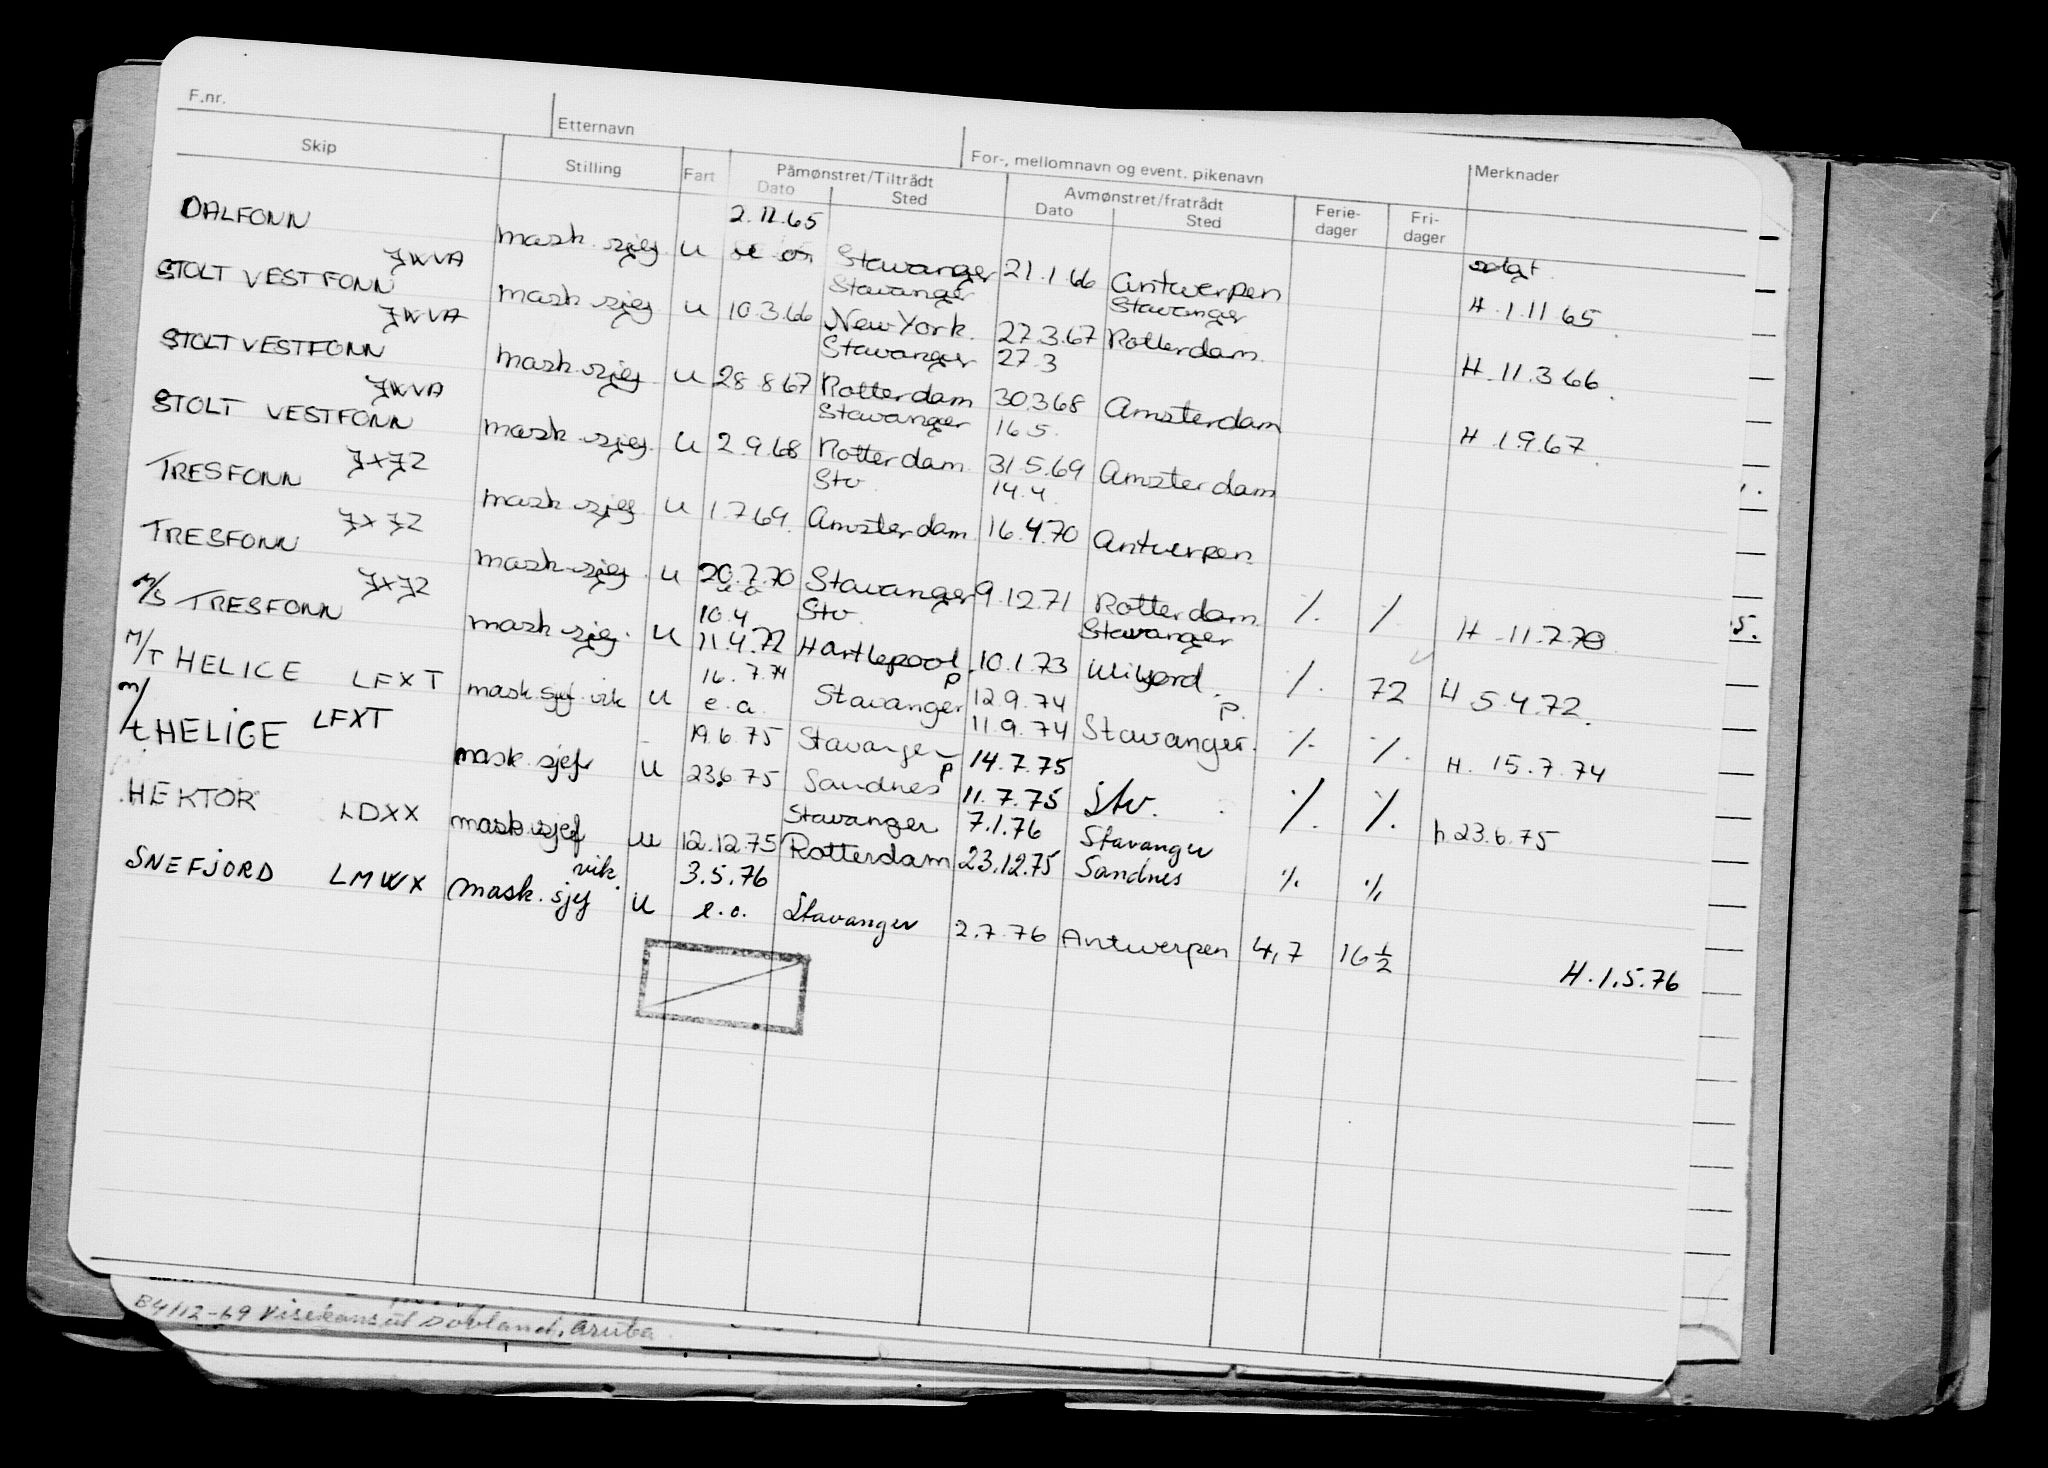 F.nr. Etternavn For-, mellomnavn og event. pikenavn
Skip Stilling Fart Påmønstret/Tiltrådt Avmønstret/fratrådt Ferie- Fri- Merknader
Dato Sted Dato Sted dager dager
2.11.65
DALFONN mask. sjef u Stavanger 21.1 66 Antwerpen solgt
JWVA Stavanger Stavanger
STOLT VESTFONN mask sjef u 10.3.66 New York. 27.3.67 Rotterdam H.1.11 65
JWVA Stavanger 27.3
STOLT VESTFONN mask. sjef u 28 8 67 Rotterdam 30.3.68 Amsterdam H.11.3 66.
JWVA Stavanger 16.5.
STOLT VESTFONN mask. sjef. u 2.9.68 Rotterdam 31.5.69 Amsterdam H.1.9.67.
JXJZ Stv. 14.4.
TRESFONN mask sjef u 1.7.69. Amsterdam 16.4.70 Antwerpen.
JXJZ
TRESFONN mask sjef. u 20.7.70 Stavanger 9.12.71 Rotterdam ./. ./. H.11.7.70
JXJZ 10.4 Stv. Stavanger
M/S TRESFONN mask sjef. u 11.4.72 Hartlepool 10.1.73 ./. 72 H 5.4.72.
16.7.74 p. 12.9.74 p.
M/T HELICE LFXT mask sjef. vik u e.a. Stavanger 11.9.74 Stavanger. ./. ./. H. 15.7.74
19.6.75 Stavanger 14.7.75
m/t HELIGE LFXT mask. sjef u 23.6.75 Sandnes p 11.7.75 Stv. ./. ./. h 23.6.75
Stavanger 7.1.76 Stavanger
HEKTOR LDXX mask. sjef u 12.12.75 Rotterdam 23.12.75 Sandnes ./. ./.
vik. 3.5.76
SNEFJORD LMWX mask. sjef u e.o. Stavanger 2.7.76 Antwerpen 4,7 16 ½ H.1.5.76
B4/12-69 Visekonsul Dovland, Aruba.